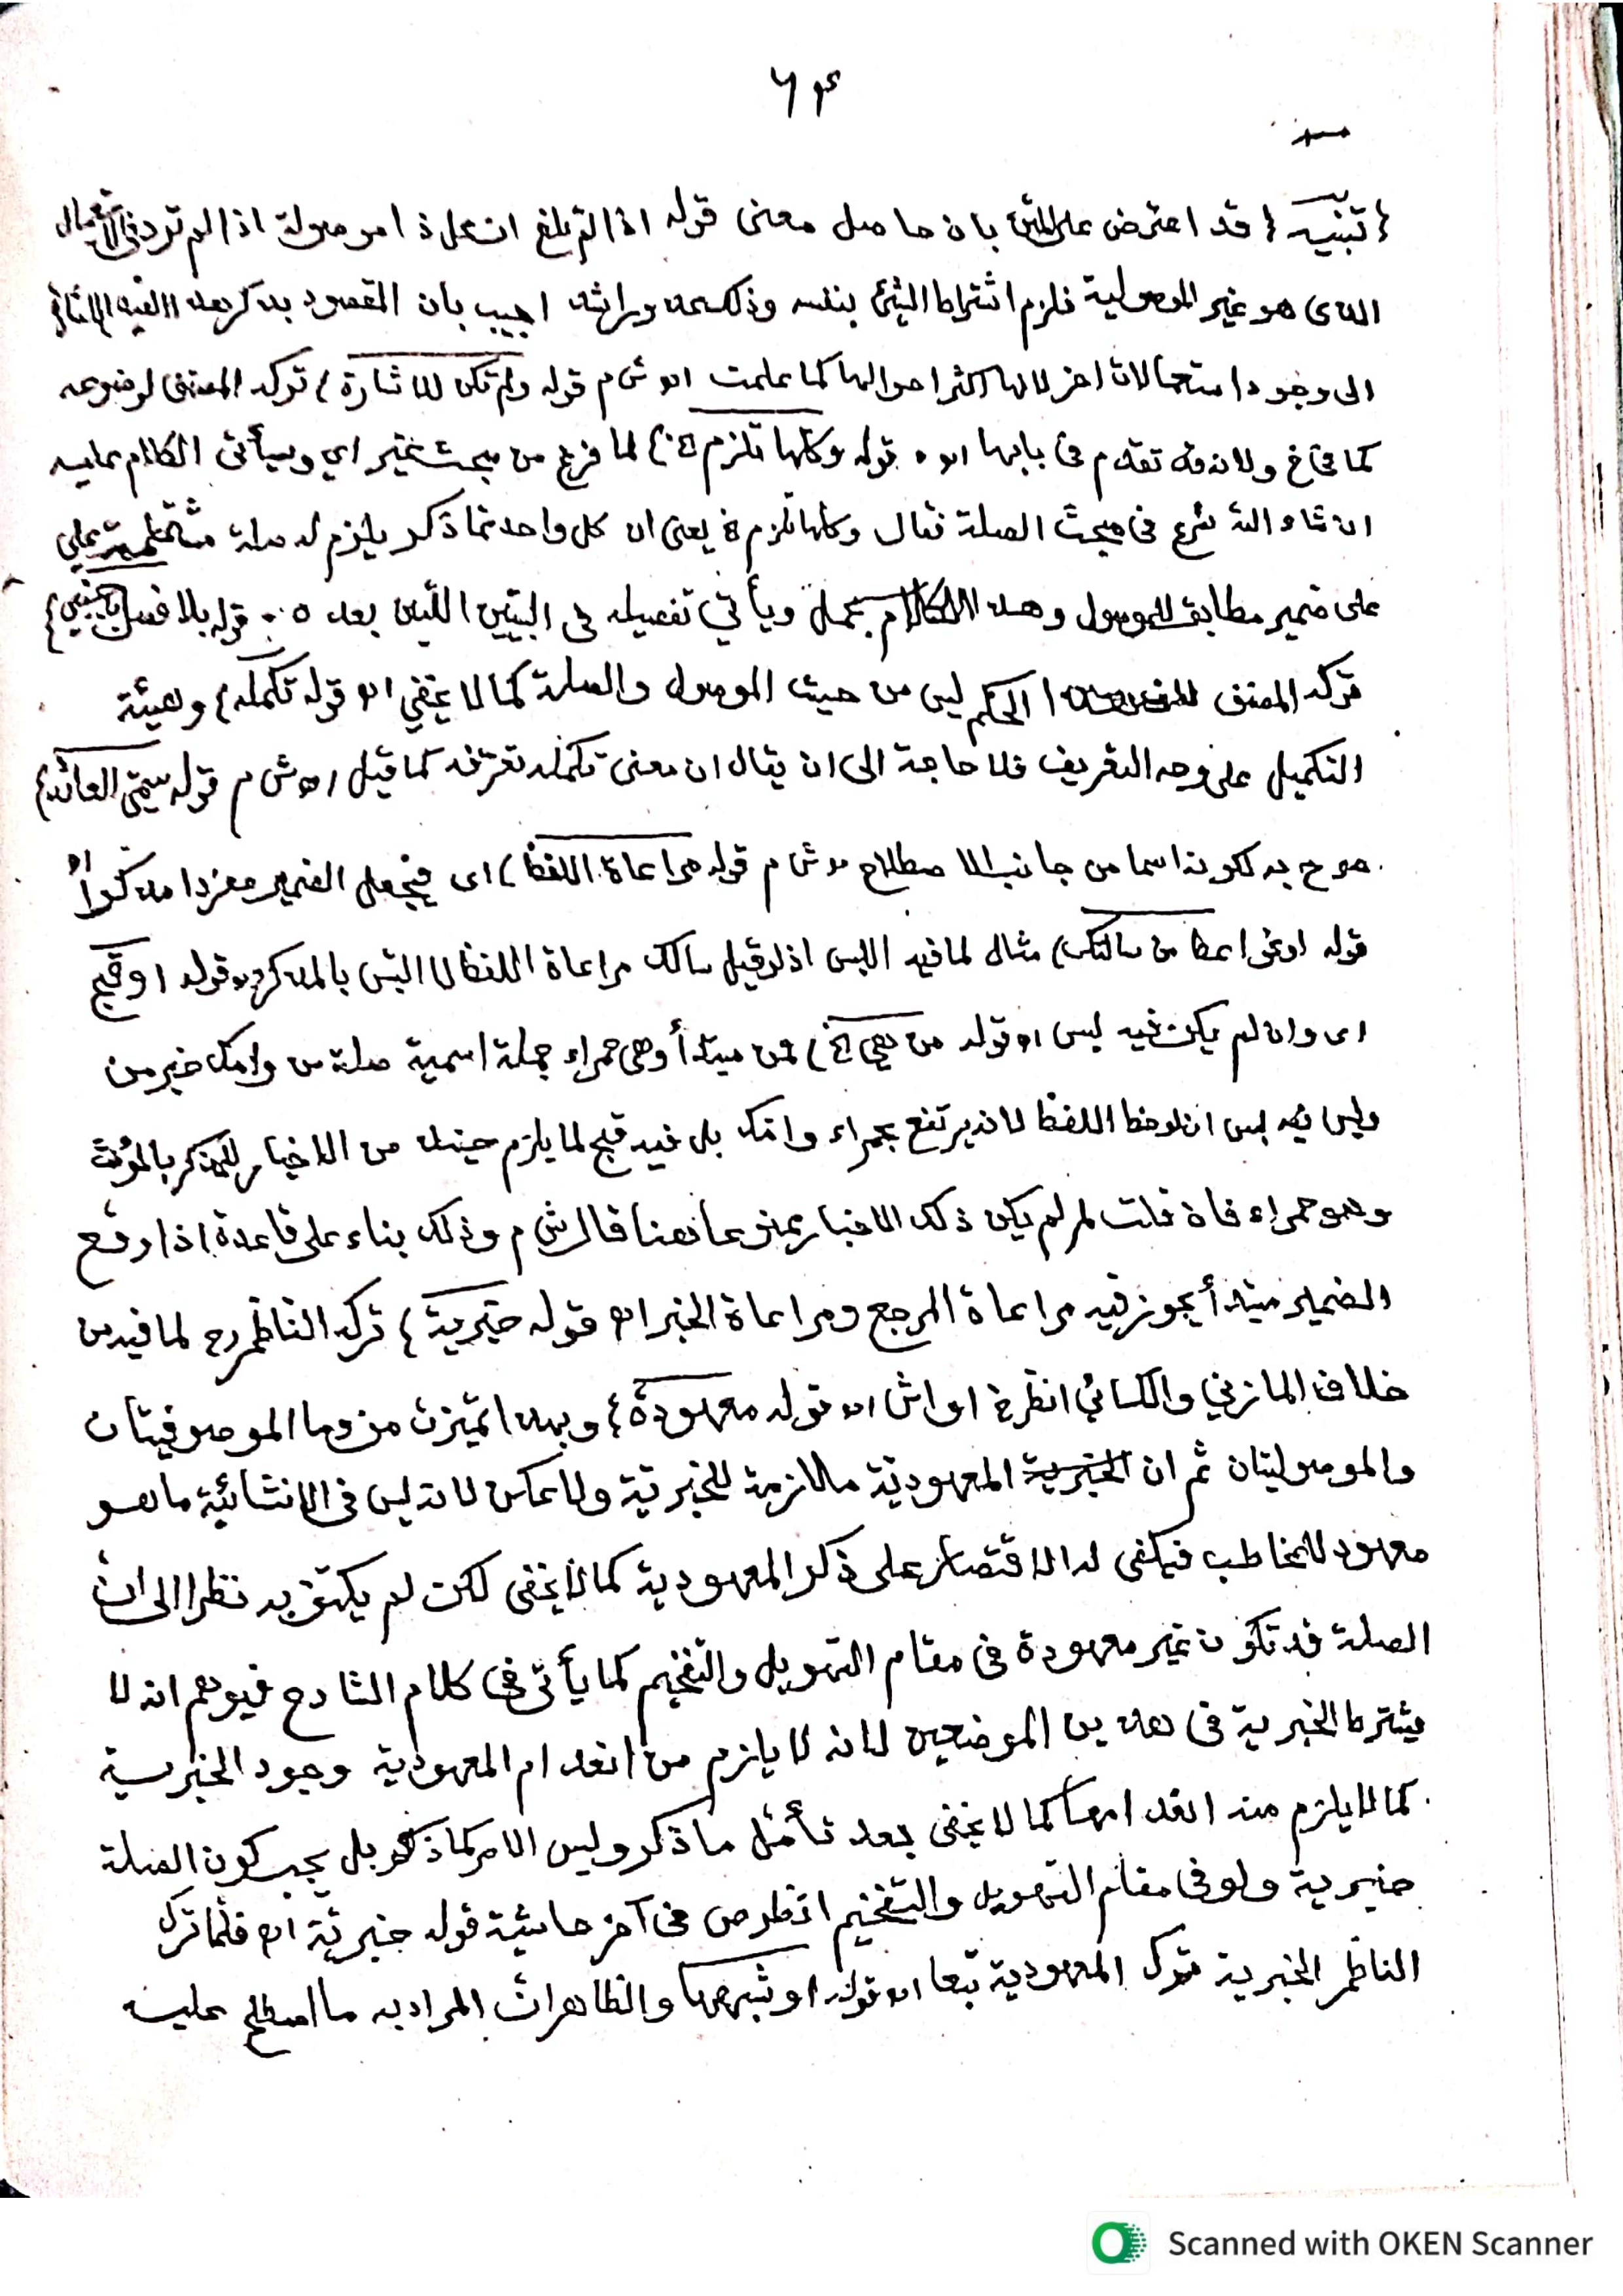 ٦٤
{تنبيه} قد اعترض على المتن بان حاصل معنى قوله اذا لم تلغ ان كل ذا موصولة اذا لم ترد في الاستعمال
الذي هو غير الموصولية فلزم اشتراط الشئ بنفسه وذلك اجيب بان المقصود بذكر هذا القيد الاشارة
الى وجود استعمالات اخر لانها اكثر احوالها كما علمت اه ش م قوله ولم تكن للاشارة) تركه المصنف لوضوحه
كما في خ ولانه قد تقدم في بابها اه قوله وكلها تلزم الخ) لما فرغ من مبحث غير اي وسيأتي الكلام عليه
ان شاء الله شرع في مبحث الصلة فقال وكلها تلزم الخ يعني ان كل واحد مما ذكر يلزم له صلة مشتملة
على ضمير مطابق للموصول وهذا الكلام مجمل ويأتي تفصيله في البيتين اللذين بعده قوله بلا فصل باجنبي}
تركه المصنف الحكم ليس من حيث الموصول والصلة كما لا يخفى اه قوله تكمله} وهيئة
التكميل على وجه التعريف فلا حاجة الى ان يقال ان معنى تكمله تعرفه كما قيل اه ش م قوله يسمى العائد}
صرح به لكونه اسما من جانب الاصطلاح ش م قوله مراعاة اللفظ) اى فيجعل الضمير مفردا مذكرا اه
قوله او نحو اعط من سالتك) مثال لما فيه اللبس اذ لو قيل سالك مراعاة اللفظ لا التبس بالمذكر قوله او قبح
اى وان لم يكن فيه لبس اه قوله من هي الخ) فمن مبتدأ وهى حمراء جملة اسمية صلة من وامك خبر من
وليس فيه لبس ان لوحظ اللفظ لانه يرتفع بحمراء وامك بل فيه قبح لما يلزم حينئذ من الاخبار للمذكر بالمؤنث
وهو حمراء فان قلت لم لم يكن ذلك الاخبار ممنوعا هنا قال ش م وذلك بناء على قاعدة اذا وقع
الضمير مبتدأ يجوز فيه مراعاة المرجع ومراعاة الخبر اه قوله خبرية} تركه الناظم رح لما فيه من
خلاف المازني والكسائي انظر خ او اش اه قوله معهودة} وبهذا تميزت من وما الموصوفيتان
والموصوليتان ثم ان الخبرية المعهودية ملازمة للخبرية ولا عكس لانه ليس في الانشائية ما هو
معهود للمخاطب فيكفى له الاقتصار على ذكر المعهودية كما لا يخفى لكن لم يكتف به نظرا الى ان
الصلة قد تكون غير معهودة في مقام التهويل والتفخيم كما يأتى فى كلام الشارح فيوهم انه لا
يشترط الخبرية فى هذين الموضعين لانه لا يلزم من انعدام المعهودية وجود الخبرية
كما لا يلزم منه انعدامها كما لا يخفى بعد تأمل ما ذكر وليس الامر كما ذكر بل يجب كون الصلة
خبرية ولو فى مقام التهويل والتفخيم انظر ص فى آخر حاشية قوله خبرية اه فلما ترك
الناظم الخبرية ترك المعهودية تبعا اه قوله او شبهها والظاهر ان المراد به ما اصطلح عليه
Scanned with OKEN Scanner